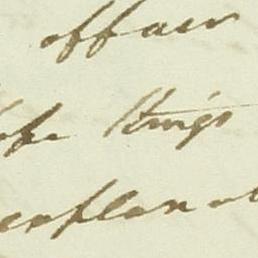 affair
Kings
explanat